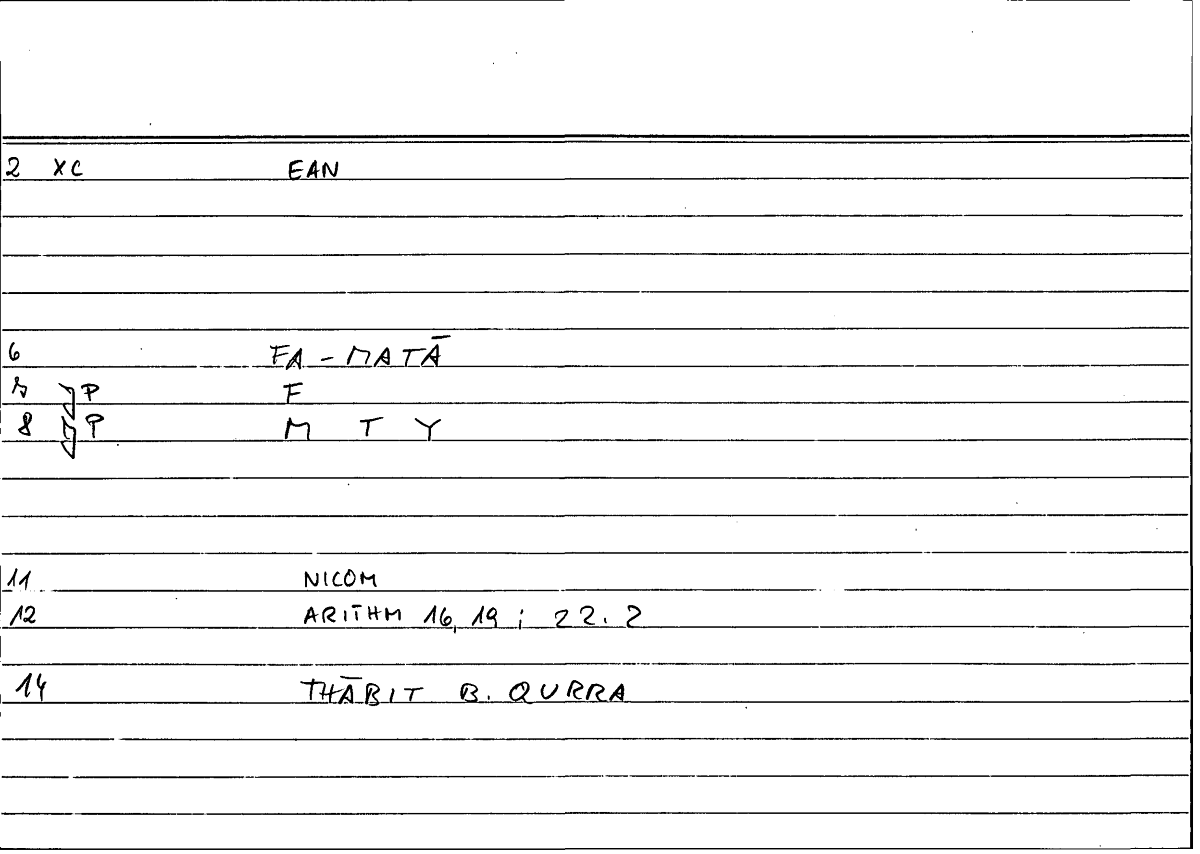 2 XC EAN
6 FA - MATĀ
7 P F
8 P M T Y
11 NICOM
12 ARITHM 16,19 ; 22.2
14 THĀBIT B. QURRA